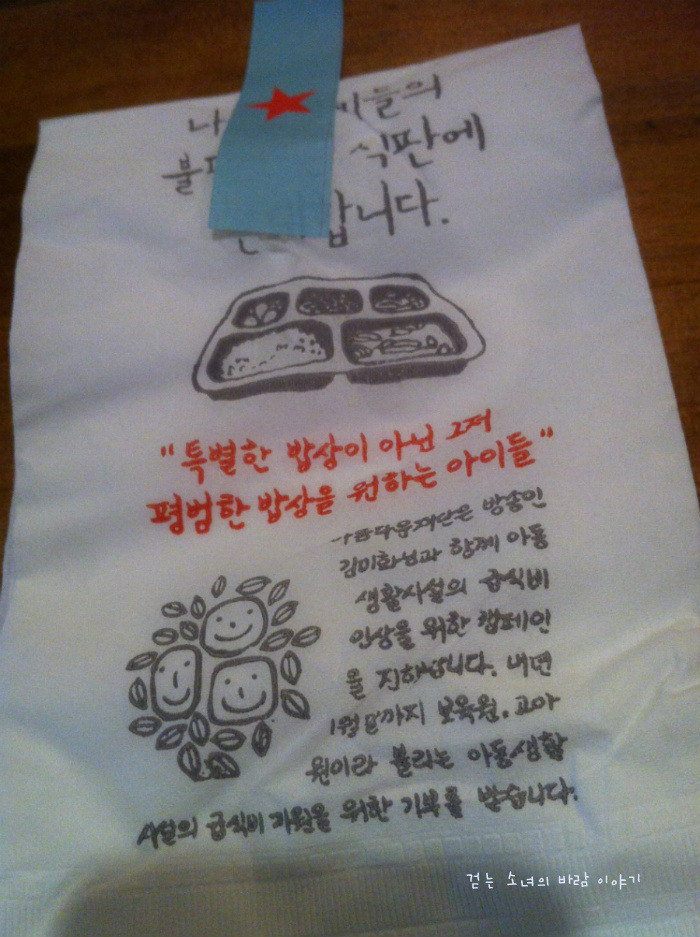 나 이들의
불 식판에
합니다.
"특별한 밥상이 아닌 그저
평범한 밥상을 원하는 아이들"
아름다운재단은 방송인
김미화님과 함께 아동
생활시설의 급식비
인상을 위한 캠페인
을 진행합니다. 내년
1월말까지 보육원, 고아
원이라 불리는 아동생활
시설의 급식비 지원을 위한 기부를 받습니다.
걷는 소녀의 바람 이야기